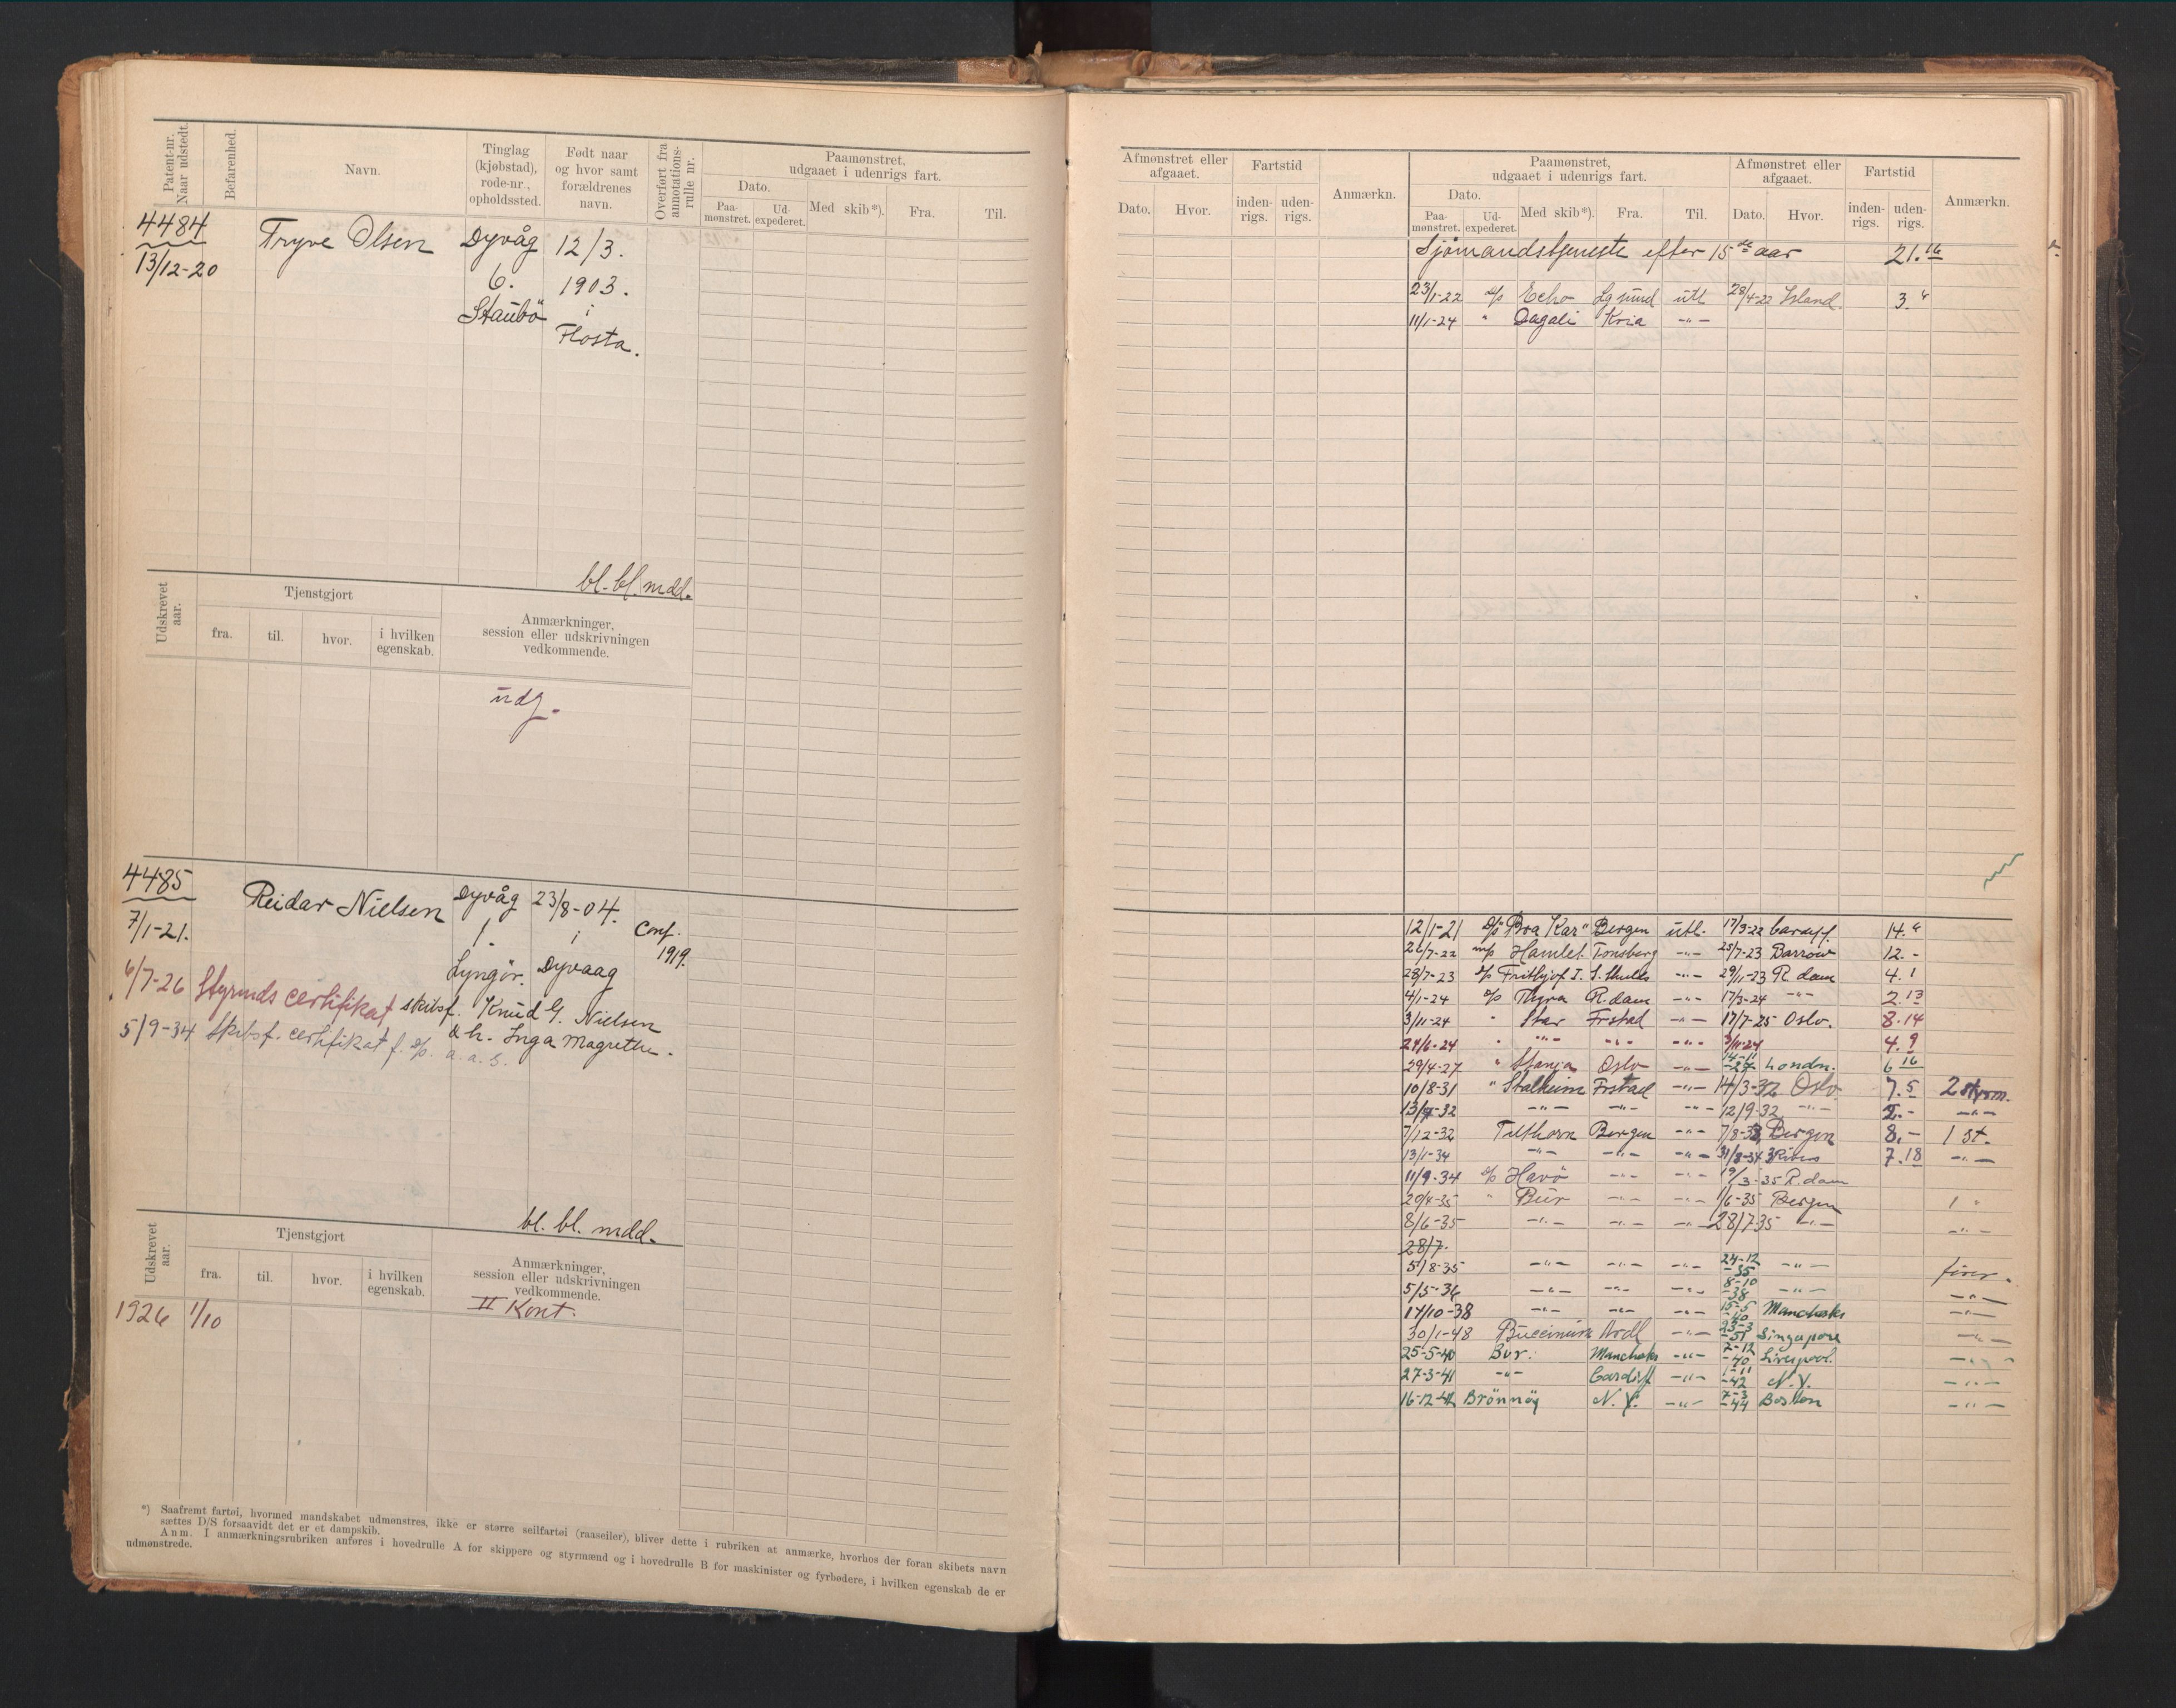 Patent-nr. Naar udstedt.
Befarenhed.
Navn.
Tinglag (kjøbstad), rode-nr., opholdssted.
Født naar og hvor samt forældrenes navn.
Overført fra annotations-rulle nr.
Paamønstret, udgaaet i udenrigs fart.
Dato.
Paa-mønstret.
Ud-expederet.
Med skib*).
Fra.
Til.
4484
13/12-20
Tryve Olsen
Dyvåg
6.
Staubö
12/3.
1903.
i
Flosta.
bl. bl. mdd.
Udskrevet aar.
Tjenstgjort
fra.
til.
hvor.
i hvilken egenskab.
Anmærkninger, session eller udskrivningen vedkommende.
udg.
4485
7/1-21.
Reidar Nielsen
Dyvåg
1.
Lyngör.
23/8-04.
i
Dyvaag
Conf. 1919.
skibsf. Knud G. Nielsen
& h. Inga Magrethe.
6/7-26 Styrmds certifikat
5/9-34 Skibsf. certifikat f. d/s. a. a. s.
bl. bl. mdd.
Udskrevet aar.
Tjenstgjort
fra.
til.
hvor.
i hvilken egenskab.
Anmærkninger, session eller udskrivningen vedkommende.
1926 1/10
II Kont.
*) Saafremt fartøi, hvormed mandskabet udmønstres, ikke er større seilfartøi (raaseiler), bliver dette i rubriken at anmærke, hvorhos der foran skibets navn
sættes D/S forsaavidt det er et dampskib.
Anm. I anmærkningsrubriken anføres i hovedrulle A for skippere og styrmænd og i hovedrulle B for maskinister og fyrbødere, i hvilken egenskab de er
udmønstrede.
Afmønstret eller afgaaet.
Dato.
Hvor.
Fartstid
inden-rigs.
uden-rigs.
Anmærkn.
Paamønstret, udgaaet i udenrigs fart.
Dato.
Paa-mønstret.
Ud-expederet.
Med skib*).
Fra.
Til.
Afmønstret eller afgaaet.
Dato.
Hvor.
Fartstid
inden-rigs.
uden-rigs.
Anmærkn.
Sjömandstjeneste efter 15de aar 21.16
23/1-22 d/s Echo Lgsund utl 28/4-22 Island. 3.6
11/1-24 " Dagali Kria -"-
12/1-21 d/s "Bra Kar" Bergen utl. 17/3-22 Cardiff. 14.6
26/7-22 m/s Hamlet Tønsberg -"- 25/7-23 Barrow 12.-
28/7-23 d/s Frithjof I. S. Shields -"- 29/11-23 R.dam 4.1
4/1-24 d/s Thyra R.dam -"- 17/3-24 -"- 2.13
3/11-24 " Star Frstad -"- 17/7-25 Oslo. 8.14
24/6-24 " -"- -"- -"- 3/11-24 4.9
29/4-27 " Stanja Oslo -"- 14-11-27 Londn. 6.16
10/8-31 " Stalheim Frstad -"- 14/3-32 Oslo 7.5 2 styrm.
13/4-32 -"- -"- -"- 12/9-32 -"- 5.- -"-
7/12-32 Tilthorn Bergen -"- 7/8-33 Bergen 8.- 1 st.
13/1-34 -"- -"- -"- 31/8-34 3Rivers 7.18 -"-
11/9-34 d/s Havö -"- -"- 19/3-35 R.dam
20/4-35 " Bur -"- -"- 1/6-35 Bergen 1 "
8/6-35 -"- -"- -"- 28/7 35 -"- -"-
28/7.
5/8-35 -"- -"- -"- 24-12-35 -"- fører.
5/5-36 -"- -"- -"- 8-10-38 -"- -"-
17/10-38 -"- -"- -"- 15-5-40 Manchester -"-
30/1-48 Buccinum Ardl -"- 23-3-51 Singapore -"-
25-5-40 Bur. Manchester -"- 7-12-40 Liverpool. -"-
27-3-41 -"- Cardiff -"- 1-11-42 N.Y. -"-
16-12-42 Brönnöy N.Y. -"- 7-3-44 Boston -"-